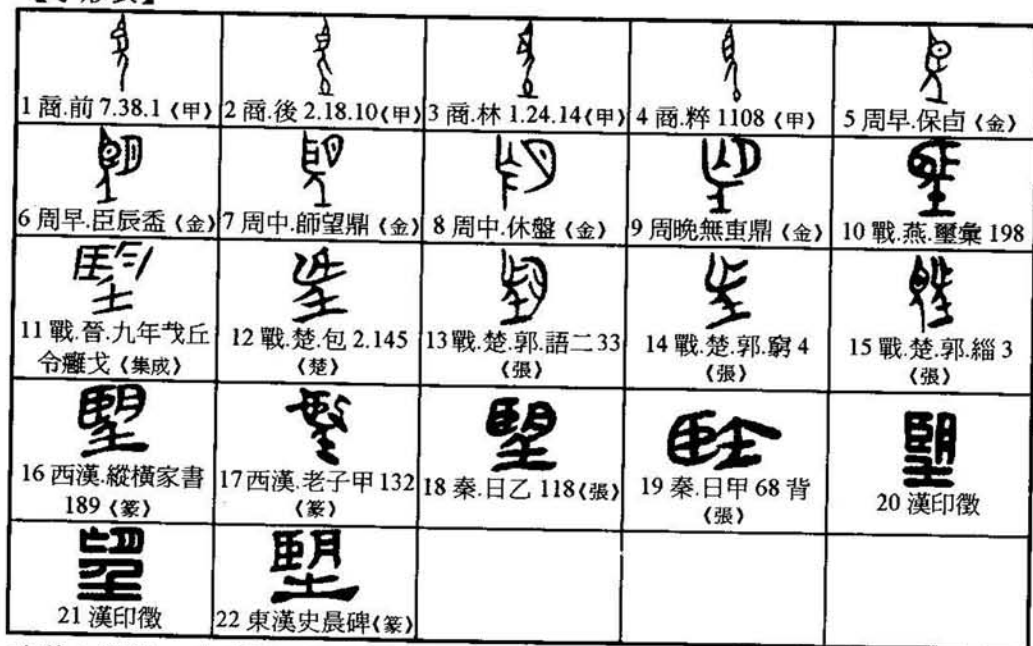 1 商.前 7.38.1《甲》 2 商.後 2.18.10《甲》 3 商.林 1.24.14《甲》 4 商.粹 1108《甲》 5 周早.保卣《金》
6 周早.臣辰盉《金》 7 周中.師望鼎《金》 8 周中.休盤《金》 9 周晚無叀鼎《金》 10 戰.燕.璽彙 198
11 戰.晉.九年戈丘令癰戈《集成》 12 戰.楚.包 2.145《楚》 13 戰.楚.郭.語二 33《張》 14 戰.楚.郭.窮 4《張》 15 戰.楚.郭.緇 3《張》
16 西漢.縱橫家書 189《篆》 17 西漢.老子甲 132《篆》 18 秦.日乙 118《張》 19 秦.日甲 68 背《張》 20 漢印徵
21 漢印徵 22 東漢史晨碑《篆》